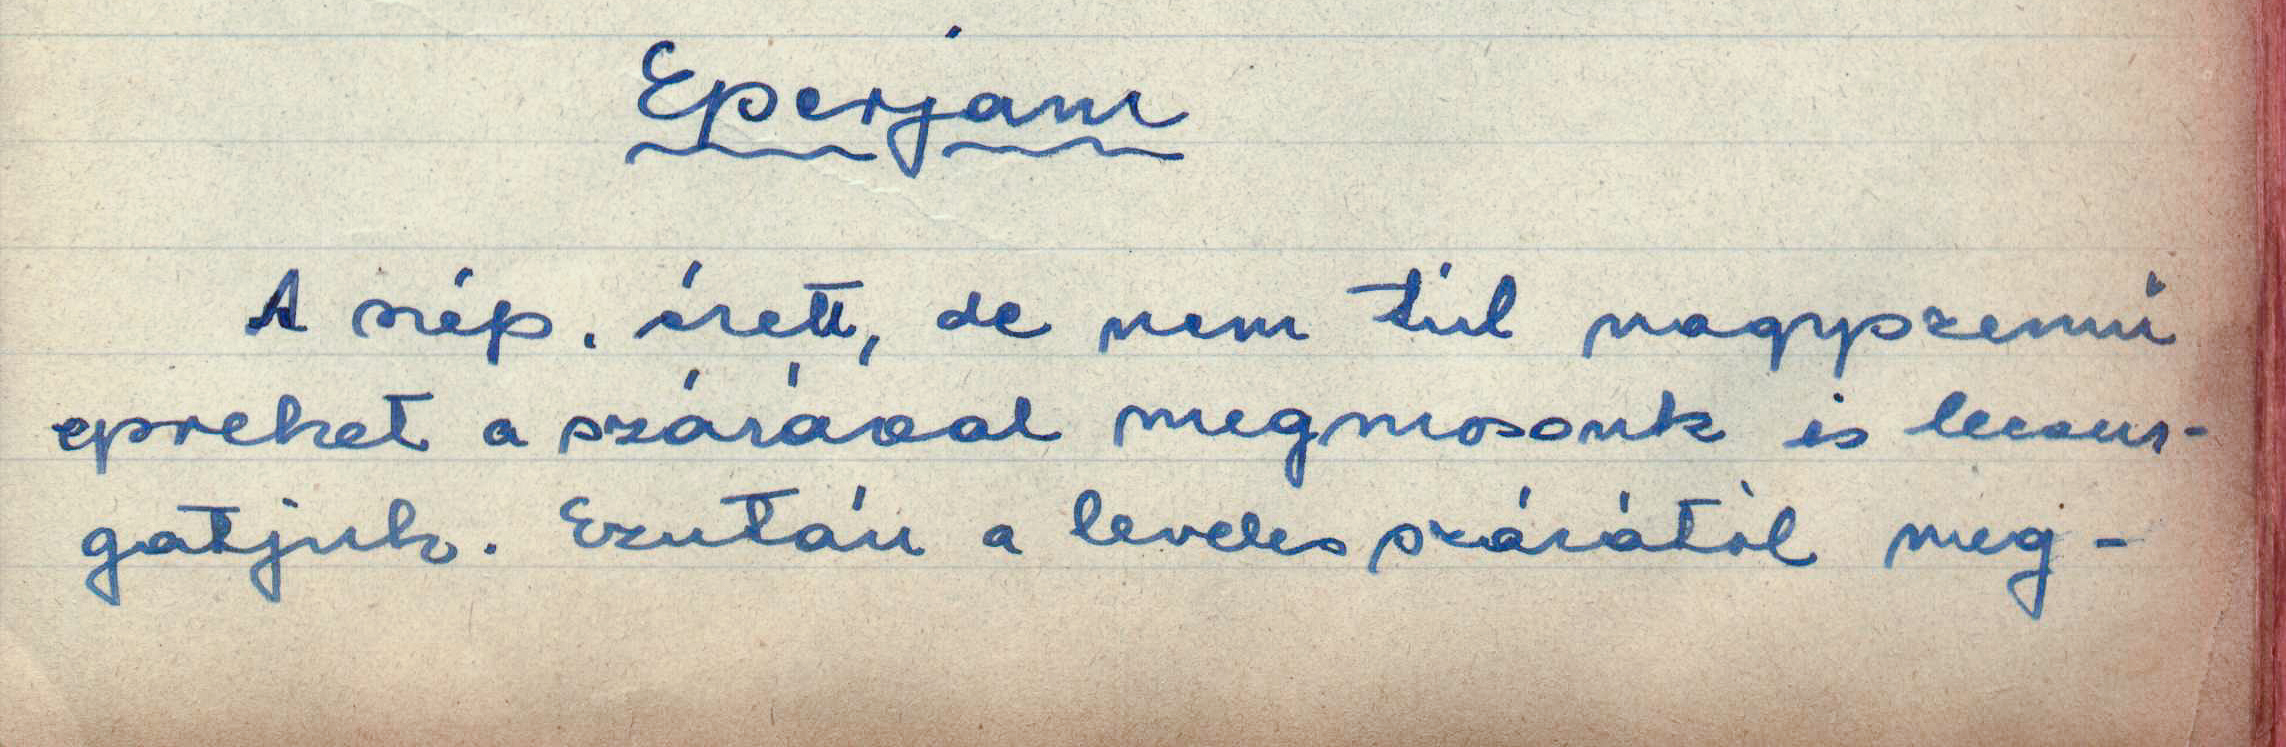 Eperjam
A szép, érett, de nem túl nagyszemű
epreket a szárával megmosunk és lecsur-
gatjuk. Ezután a leveles szárától meg-